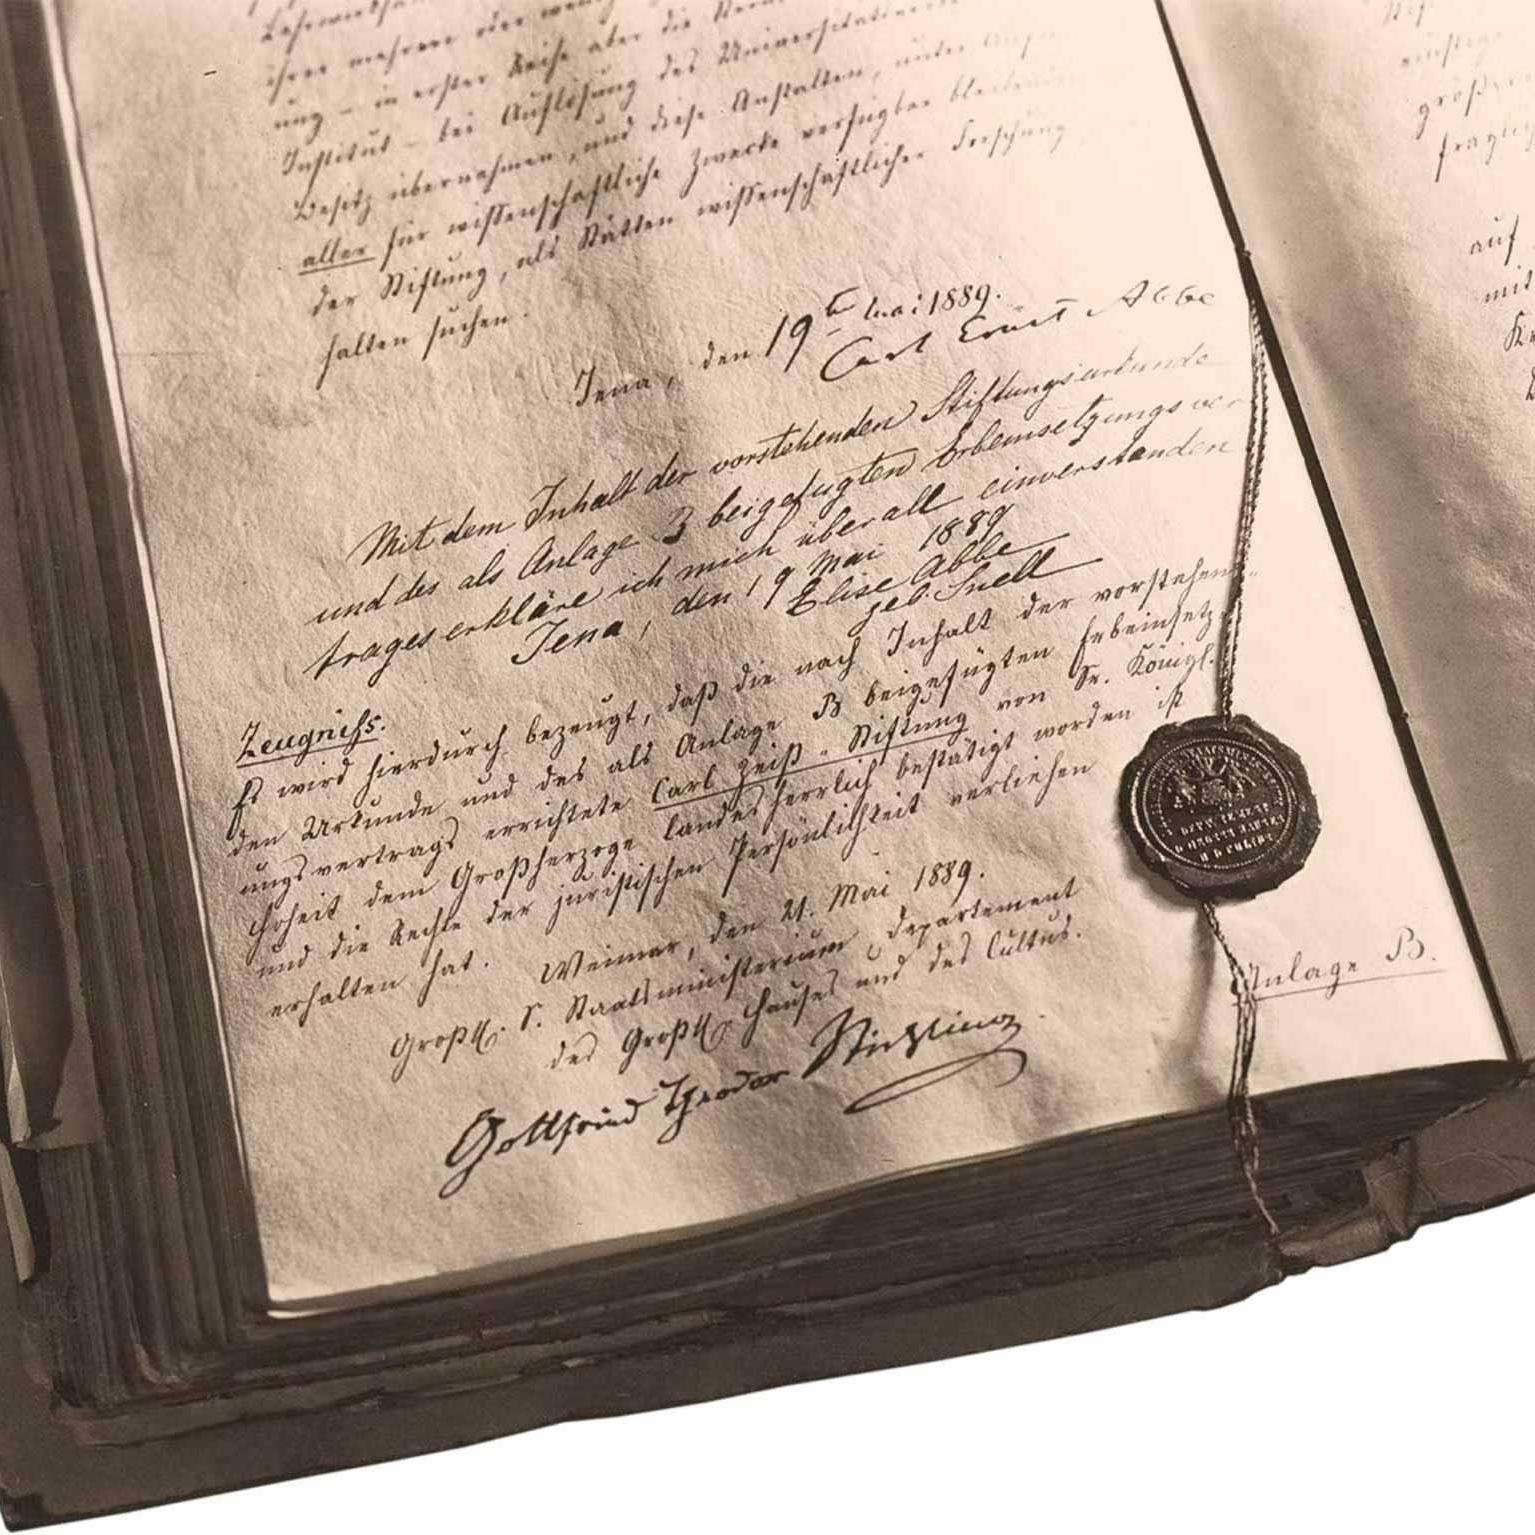 ihren mehrere oder wen
ung – in erster Reihe aber die
Institut – bei Auflösung des Universitäts
Besitz übernehmen, und diese Anstalten, unter
aller für wissenschaftliche Zwecke verfügbar bleibenden
der Stiftung, als Stätten wissenschaftlicher Forschung
halten suchen.
Jena, den 19ten Mai 1889.
Carl Ernst Abbe
Mit dem Inhalt der vorstehenden Stiftungsurkunde
und des als Anlage B beigefügten Erbeinsetzungsver
trages erkläre ich mich überall einverstanden
Jena, den 19 Mai 1889
Elise Abbe
geb. Snell
Zeugniß.
Es wird hierdurch bezeugt, daß die nach Inhalt der vorstehen-
den Urkunde und des als Anlage B beigefügten Erbeinsetz-
ungsvertrags errichtete Carl Zeiß-Stiftung von Sr. Königl.
Hoheit dem Großherzoge landesherrlich bestätigt worden ist
und die Rechte der juristischen Persönlichkeit verliehen
erhalten hat.
Weimar, den 21. Mai 1889.
Großh. S. Staatsministerium, Departement
des Großh. Hauses und des Cultus.
Gottfried Theodor Stichling
Anlage B.
auf
mit